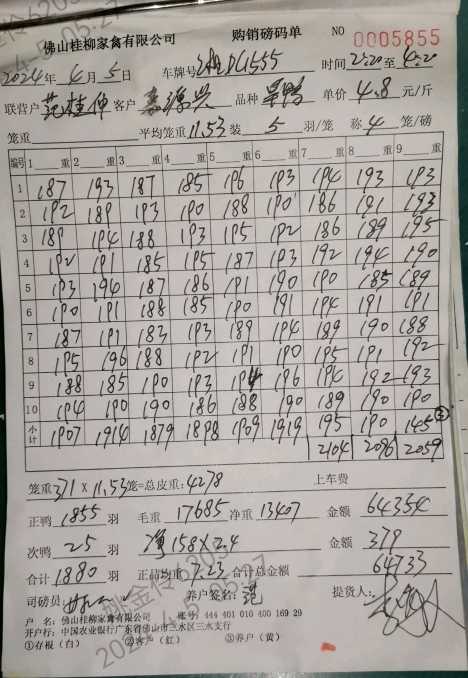 佛山桂柳家禽有限公司 购销磅码单 NO 0005855
2024年4月5日 车牌号 时间 22:20 至 4:20
联营户 范桂伸 客户 品种 单价 4.8 元/斤
笼重 平均笼重 11.53 装 5 羽/笼 称 4 笼/磅
编号 1 重 2 重 3 重 4 重 5 重 6 重 7 重 8 重 9 重
1 187 193 187 185 196 193 194 193 193
2 192 189 193 190 188 190 186 191 193
3 189 194 188 193 195 192 186 189 195
4 192 191 185 195 187 193 192 194 190
5 193 194 187 186 191 190 190 185 189
6 190 191 188 185 190 191 194 191 191
7 187 191 183 193 189 194 189 190 188
8 195 196 188 192 191 190 195 191 192
9 188 185 190 193 194 196 194 192 193
10 194 190 190 186 188 190 189 190 190
小计 1907 1914 1879 1898 1909 1919 195 190 145
2104 2096 2059
笼重 371 × 11.53 笼=总皮重: 4278 上车费
正鸭 1855 羽 毛重 17685 净重 13407 金额 64354
次鸭 25 羽 净 158×2.4 金额 379
合计 1880 羽 正品均重 7.23 合计总金额 64733
司磅员: 养户签名: 范 提货人:
户 名: 佛山桂柳家禽有限公司 账号: 444 401 010 400 169 29
开户行: 中国农业银行广东省佛山市三水区三水支行
①存根（白） ②客户（红） ③养户（黄）